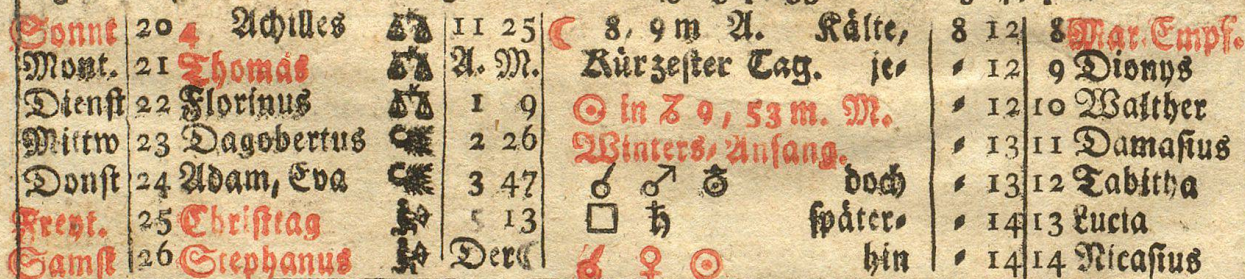 Sonnt 20 4 Achilles ♎ 11 25 ☾ 8, 9 m A. Kälte, 8 12 8 Mar. Empf.
Mont. 21 Thomas ♎ A. M. Kürzester Tag. je- - 12 9 Dionys
Dienst 22 Florinus ♎ 1 9 ☉ in ♑ 9, 53 m. M. - 12 10 Walther
Mittw 23 Dagobertus 2 26 Winters-Anfang. - 13 11 Damasius
Donst 24 Adam, Eva 3 47 ☌ ♂ doch - 13 12 Tabitha
Freyt. 25 Christtag 5 13 □ ♄ später- - 14 13 Lucia
Samst 26 Stephanus Der ☾ ☌ ♀ ☉ hin - 14 14 Nicasius